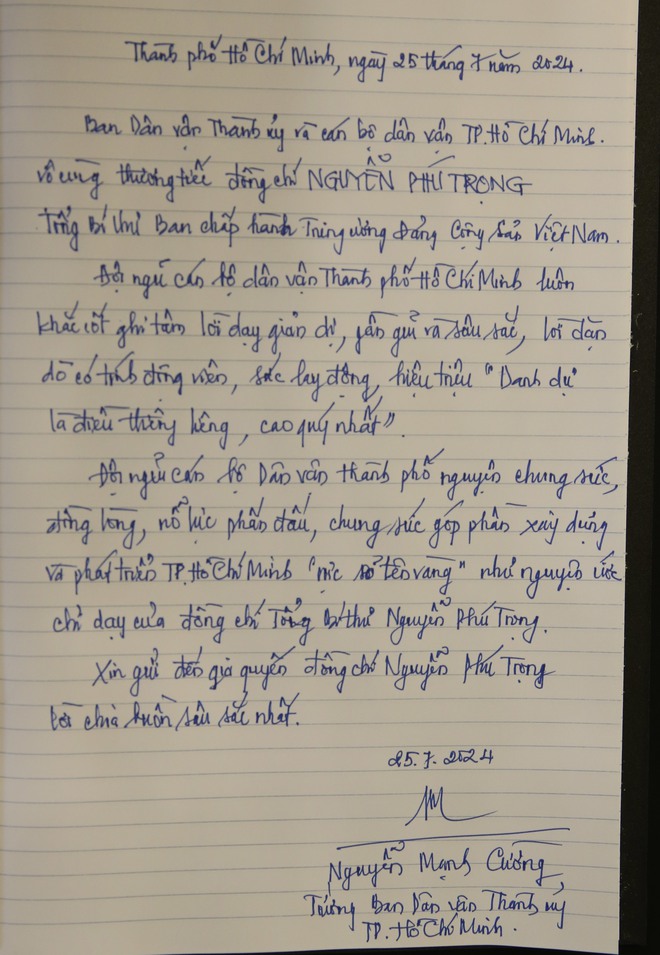 Thành phố Hồ Chí Minh, ngày 25 tháng 7 năm 2024.
Ban Dân vận Thành ủy và cán bộ dân vận TP. Hồ Chí Minh.
vô cùng thương tiếc đồng chí NGUYỄN PHÚ TRỌNG
Tổng Bí thư Ban chấp hành Trung ương Đảng Cộng sản Việt Nam.
Đội ngũ cán bộ dân vận Thành phố Hồ Chí Minh luôn
khắc cốt ghi tâm lời dạy giản dị, gần gũi và sâu sắc, lời dặn
dò có tính động viên, sức lay động, hiệu triệu "Danh dự
là điều thiêng liêng, cao quý nhất".
Đội ngũ cán bộ Dân vận thành phố nguyện chung sức,
đồng lòng, nỗ lực phấn đấu, chung sức góp phần xây dựng
và phát triển TP. Hồ Chí Minh "rực rỡ tên vàng" như nguyện ước
chỉ dạy của đồng chí Tổng Bí thư Nguyễn Phú Trọng.
Xin gửi đến gia quyến đồng chí Nguyễn Phú Trọng
lời chia buồn sâu sắc nhất.
25.7.2024
Nguyễn Mạnh Cường,
Trưởng Ban Dân vận Thành ủy
TP. Hồ Chí Minh.